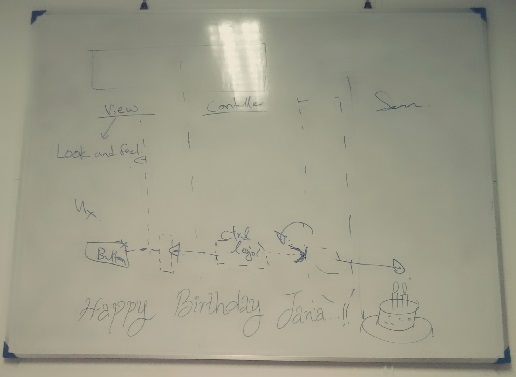 View Controller
Look and feel
Ux
Button ctrl logic
Happy Birthday Jana !!